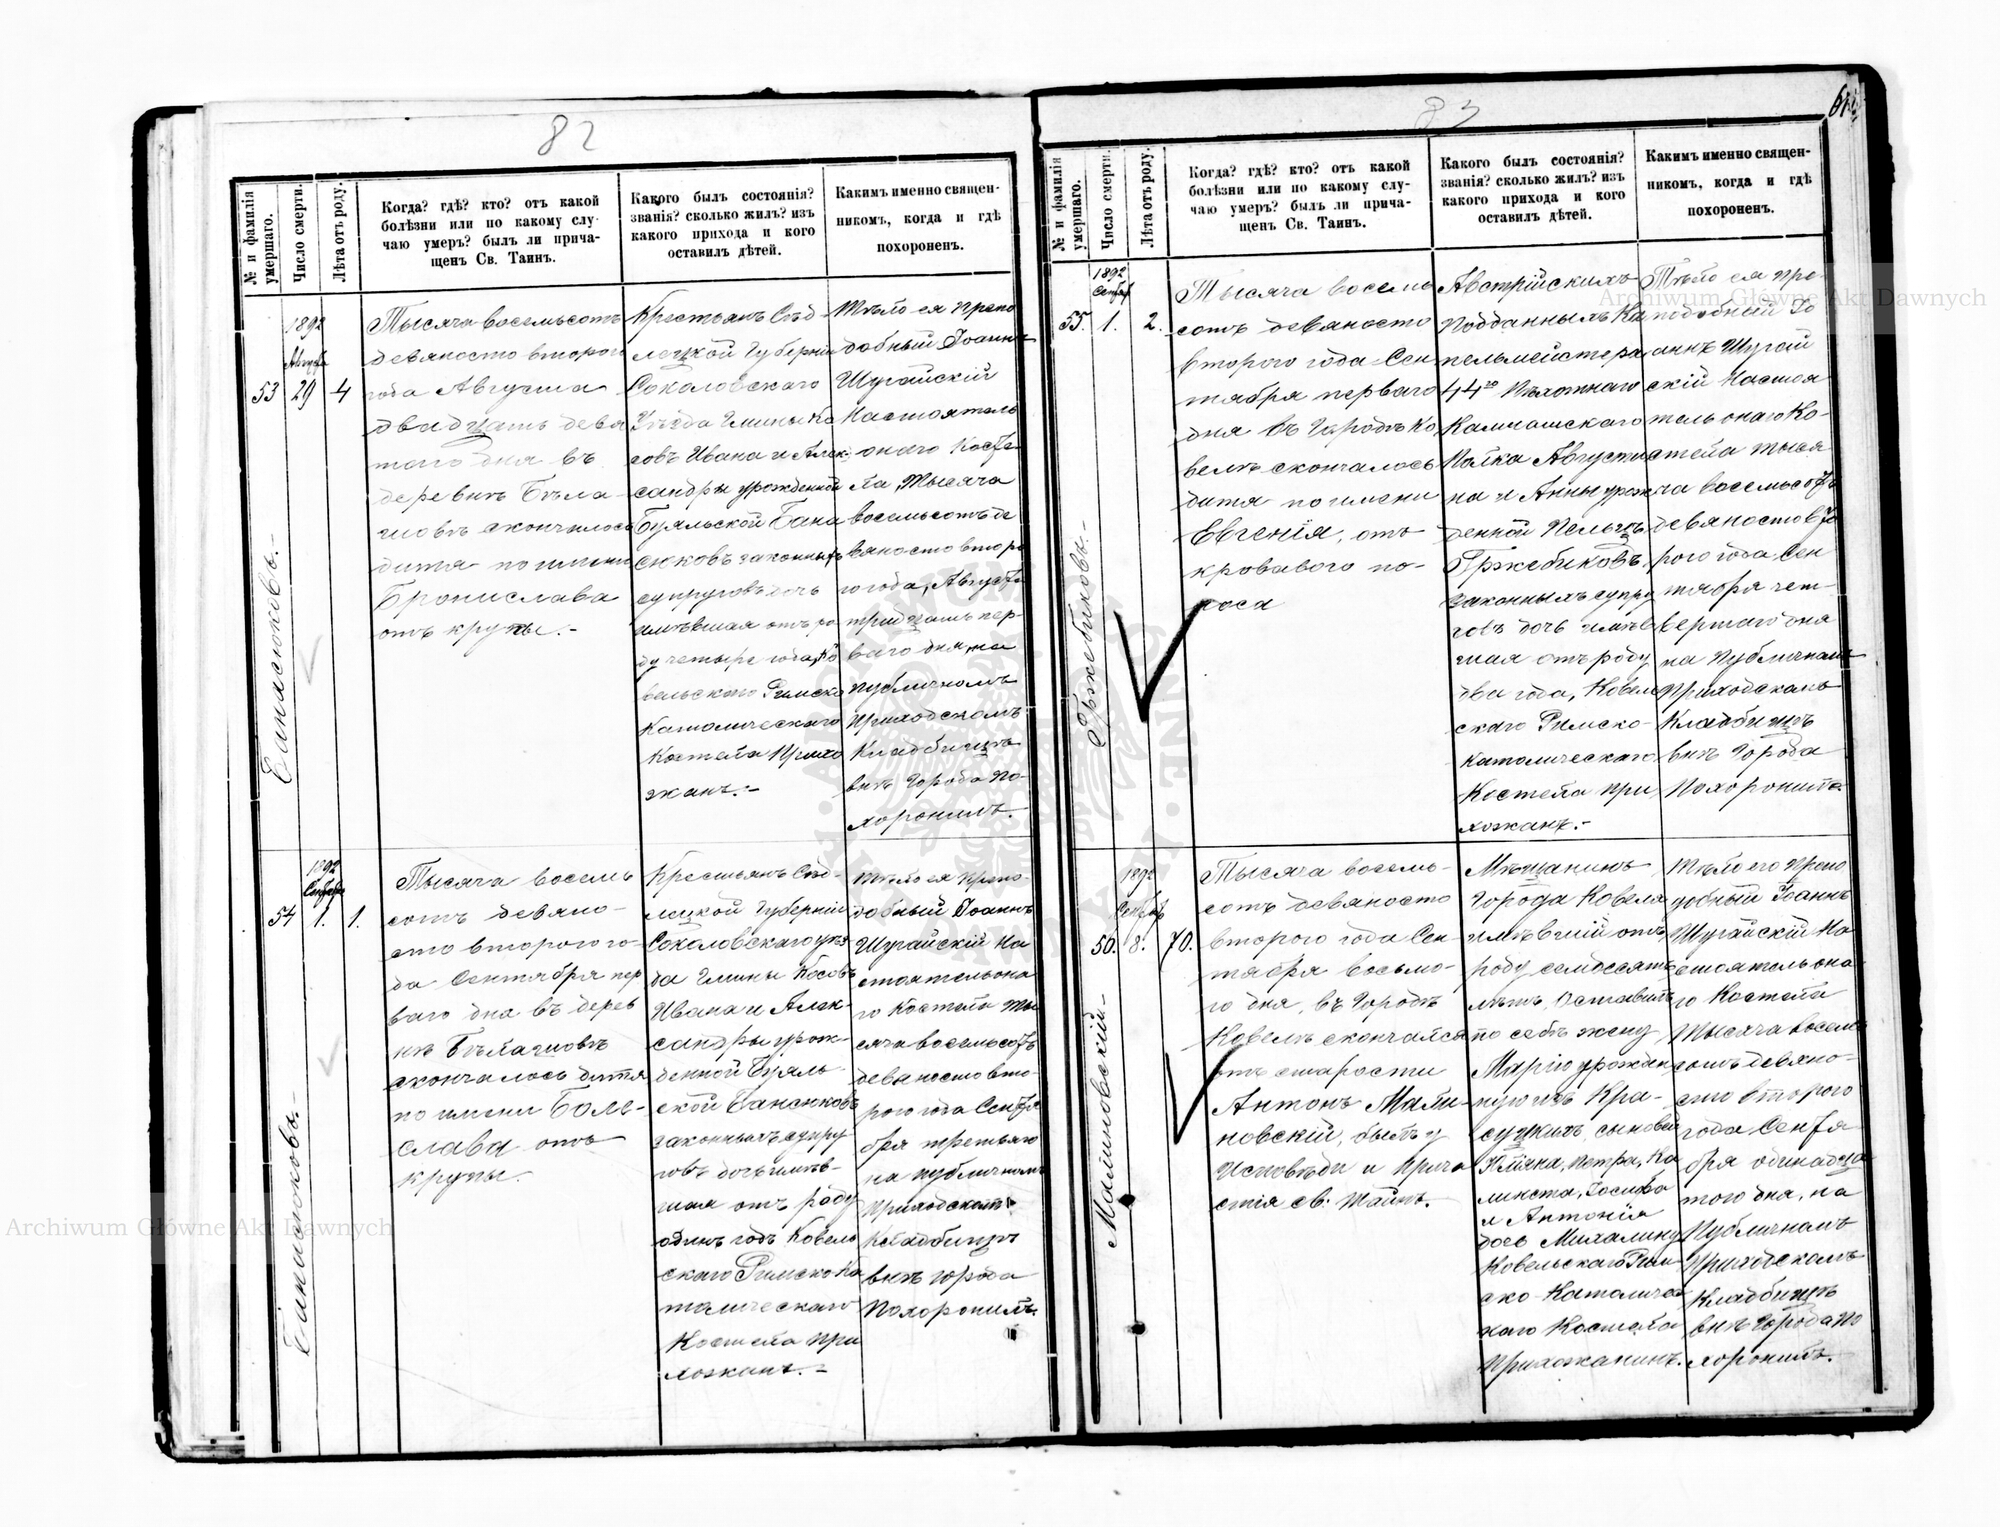 82
№ и фамилія умершаго.
Число смерти.
Лѣта отъ роду.
Когда? гдѣ? кто? отъ какой
болѣзни или по какому слу-
чаю умеръ? былъ ли прича-
щенъ Св. Таинъ.
Какого былъ состоянія?
званія? сколько жилъ? изъ
какого прихода и кого
оставилъ дѣтей.
Какимъ именно священ-
никомъ, когда и гдѣ
похороненъ.
53
1892
Августа
29
4
Тысяча восемьсотъ
девяносто второго
года Августа
двадцать девя
того дня въ
деревнѣ Бѣла-
шовъ скончалось
дитя по имени
Бронислава
отъ крупы.-
Крестьянъ Сѣд
лецкой Губерніи
Соколовскаго
Уѣзда Гмины Ко
совъ Ивана и Алек
сандры урожденной
Буяльской Бана
сюковъ законныхъ
супруговъ дочь
имѣвшая отъ ро
ду четыре года, Ко
вельскаго Римско
Католическаго
Костела Прихо
жанъ.-
Тѣло ея Препо
добный Іоаннъ
Шугайскій
Настоятель
онаго Косте
ла, Тысяча
восемьсотъ де
вяносто второ
го года, Августа
тридцать пер-
ваго дня, на
публичномъ
Приходскомъ
Кладбищѣ
внѣ Города по-
хоронилъ.
54
1892
Сентября
1.
1.
Банасюковы.-
Тысяча восемь
сотъ девяно-
сто второго го-
да Сентября пер
ваго дня въ дерев
нѣ Бѣлашовъ
скончалось дитя
по имени Боле-
слава отъ
крупы.
Крестьянъ Сѣд-
лецкой Губерніи
Соколовскаго уѣз
да Гмины Косовъ
Ивана и Алек-
сандры урож-
денной Буяль-
ской Банасюковъ
законныхъ супру
говъ дочь имѣв-
шая отъ роду
одинъ годъ Ковель
скаго Римско Ка
толическаго
Костела при
хожанъ.-
Тѣло ея Препо-
добный Іоаннъ
Шугайскій На
стоятель она
го Костела Ты
сяча восемьсотъ
девяносто вто-
рого года Сентя
бря третьяго
на публичномъ
Приходскомъ
Кладбищѣ
внѣ города
Похоронилъ.
83
№ и фамилія умершаго.
Число смерти.
Лѣта отъ роду.
Когда? гдѣ? кто? отъ какой
болѣзни или по какому слу-
чаю умеръ? былъ ли прича-
щенъ Св. Таинъ.
Какого былъ состоянія?
званія? сколько жилъ? изъ
какого прихода и кого
оставилъ дѣтей.
Какимъ именно священ-
никомъ, когда и гдѣ
похороненъ.
55.
1892
Сентяб
1.
2.
Гржебиковы.-
Тысяча восемь
сотъ девяносто
второго года Сен
тября перваго
дня въ Городѣ Ко
велѣ скончалось
дитя по имени
Евгенія, отъ
кроваваго по-
носа
Австрійскихъ
Подданныхъ Ка
пельмейстера
44го Пѣхотнаго
Камчатскаго
Полка Августи
на и Анны урож
денной Пельцъ
Гржебиковъ,
законныхъ супру
говъ дочь имѣв
шая отъ роду
два года, Ковель
скаго Римско-
католическаго
Костела при
хожанъ.-
Тѣло ея Пре-
подобный Іо
аннъ Шугай
скій Настоя
тель онаго Ко-
стела тыся
ча восемьсотъ
девяносто вто
рого года Сен
тября чет-
вертаго дня
на Публичномъ
Приходскомъ
Кладбищѣ
внѣ Города
Похоронилъ.
56.
1892
Сентяб
8.
70.
Малиновскій.-
Тысяча восемь-
сотъ девяносто
второго года Сен-
тября восьмо-
го дня, въ Городѣ
Ковелѣ скончался
отъ старости
Антонъ Мали-
новскій, былъ у
Исповѣди и прича
стія св: Тайнъ.
Мѣщанинъ
Города Ковеля
имѣвшій отъ
роду семдесятъ
лѣтъ, Оставилъ
по себѣ жену
Марію урожден
ную изъ Кра-
суцкихъ, сыновей
Юліяна, Петра, Ка
ликста, Іосифа
и Антонія
дочь Михалину
Ковельскаго Рим
ско-Католичес
каго Костела
Прихожанинъ.
Тѣло его Препо
добный Іоаннъ
Шугайскій На
стоятель она
го Костела
Тысяча восемь
сотъ девяно-
сто второго
года Сентя
бря одинадца
того дня, на
Публичномъ
Приходскомъ
Кладбищѣ
внѣ Города по
хоронилъ.
Archiwum Główne Akt Dawnych
Archiwum Główne Akt Dawnych